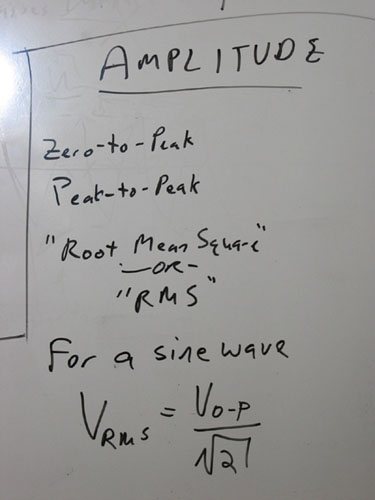 AMPLITUDE
Zero-to-Peak
Peak-to-Peak
"Root Mean Square"
-OR-
"RMS"
For a sine wave
V_RMS = V_0-P / √2